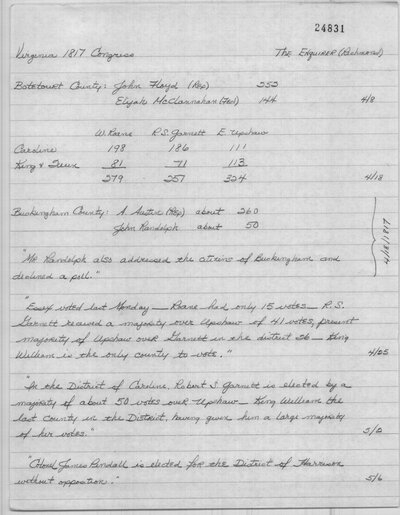 24831
Virginia 1817 Congress The Enquirer (Richmond)
Botetourt County: John Floyd (Rep) 252
Elijah McClannahan (Fed) 144 4/8
W. Roane R.S. Garnett E. Upshaw
Caroline 198 186 111
King & Queen 81 71 113
279 257 324 4/18
Buckingham County: A Austin (Rep) about 260
John Randolph about 50
"Mr Randolph also addressed the citizens of Buckingham and
declined a poll."
4/18/1817
"Essex voted last Monday — Roane had only 15 votes — R.S.
Garnett received a majority over Upshaw of 41 votes, present
majority of Upshaw over Garnett in the district 26 — King
William is the only county to vote." 4/25
"In the District of Caroline, Robert S Garnett is elected by a
majority of about 50 votes over Upshaw — King William the
last County in the District, having given him a large majority
of her votes." 5/2
"Colonel James Pindall is elected for the District of Harrison
without opposition." 5/6